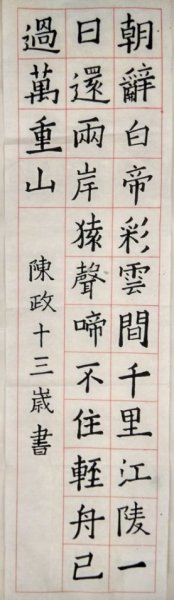 朝辭白帝彩雲間千里江陵一
日還兩岸猿聲啼不住輕舟已
過萬重山
陳政十三歲書